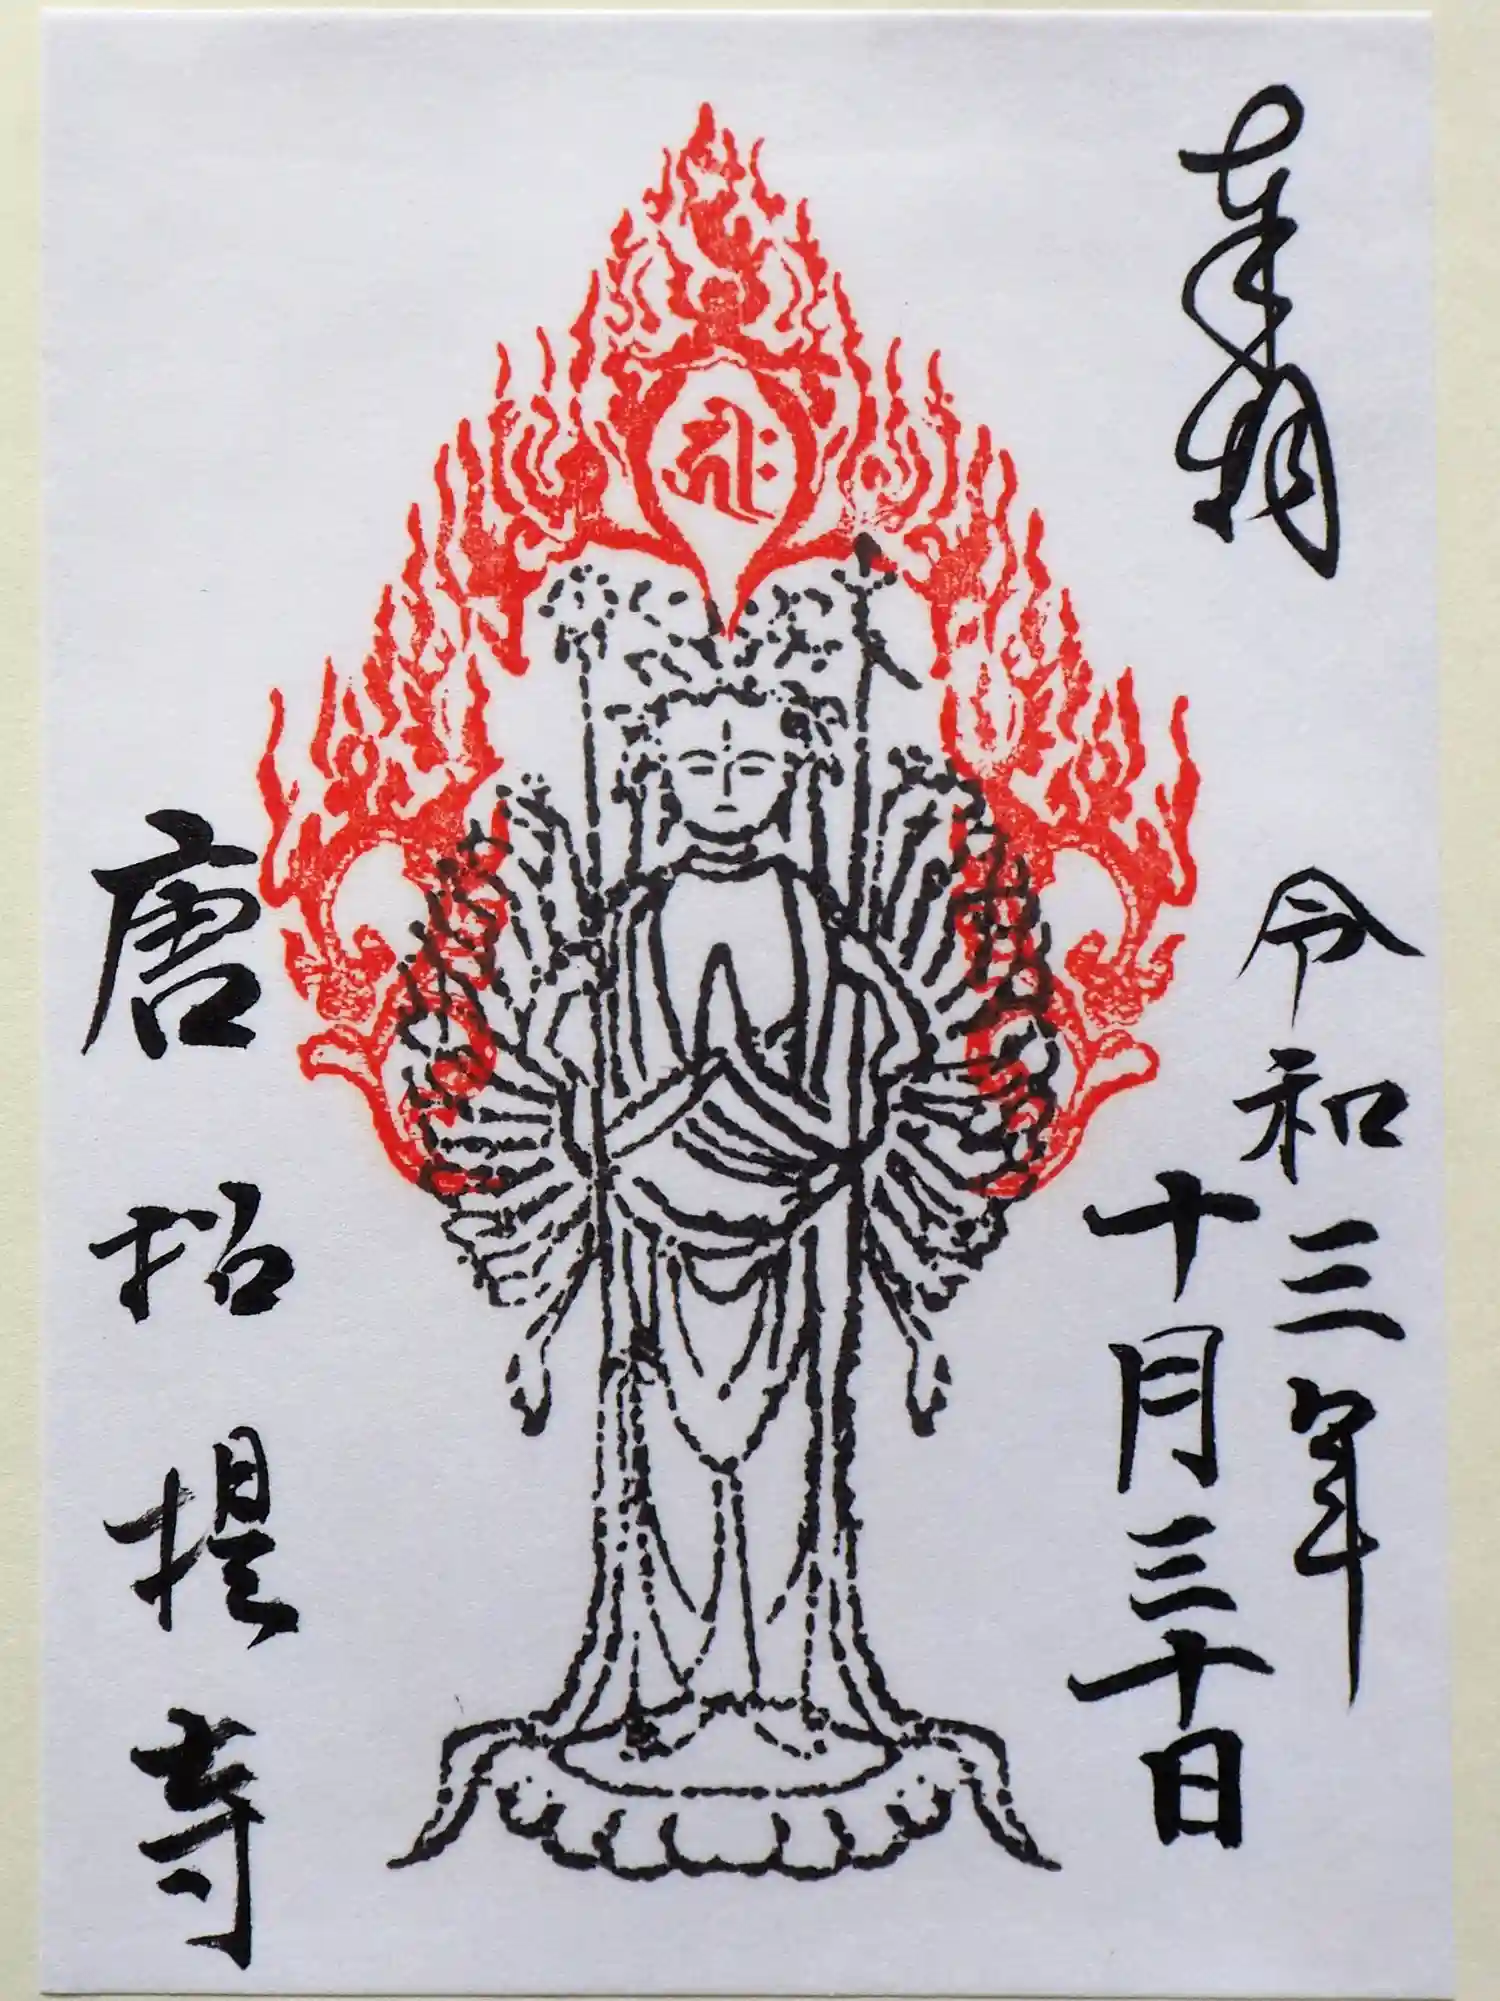 奉拝
令和三年
十月三十日
ह्रीः
唐招提寺